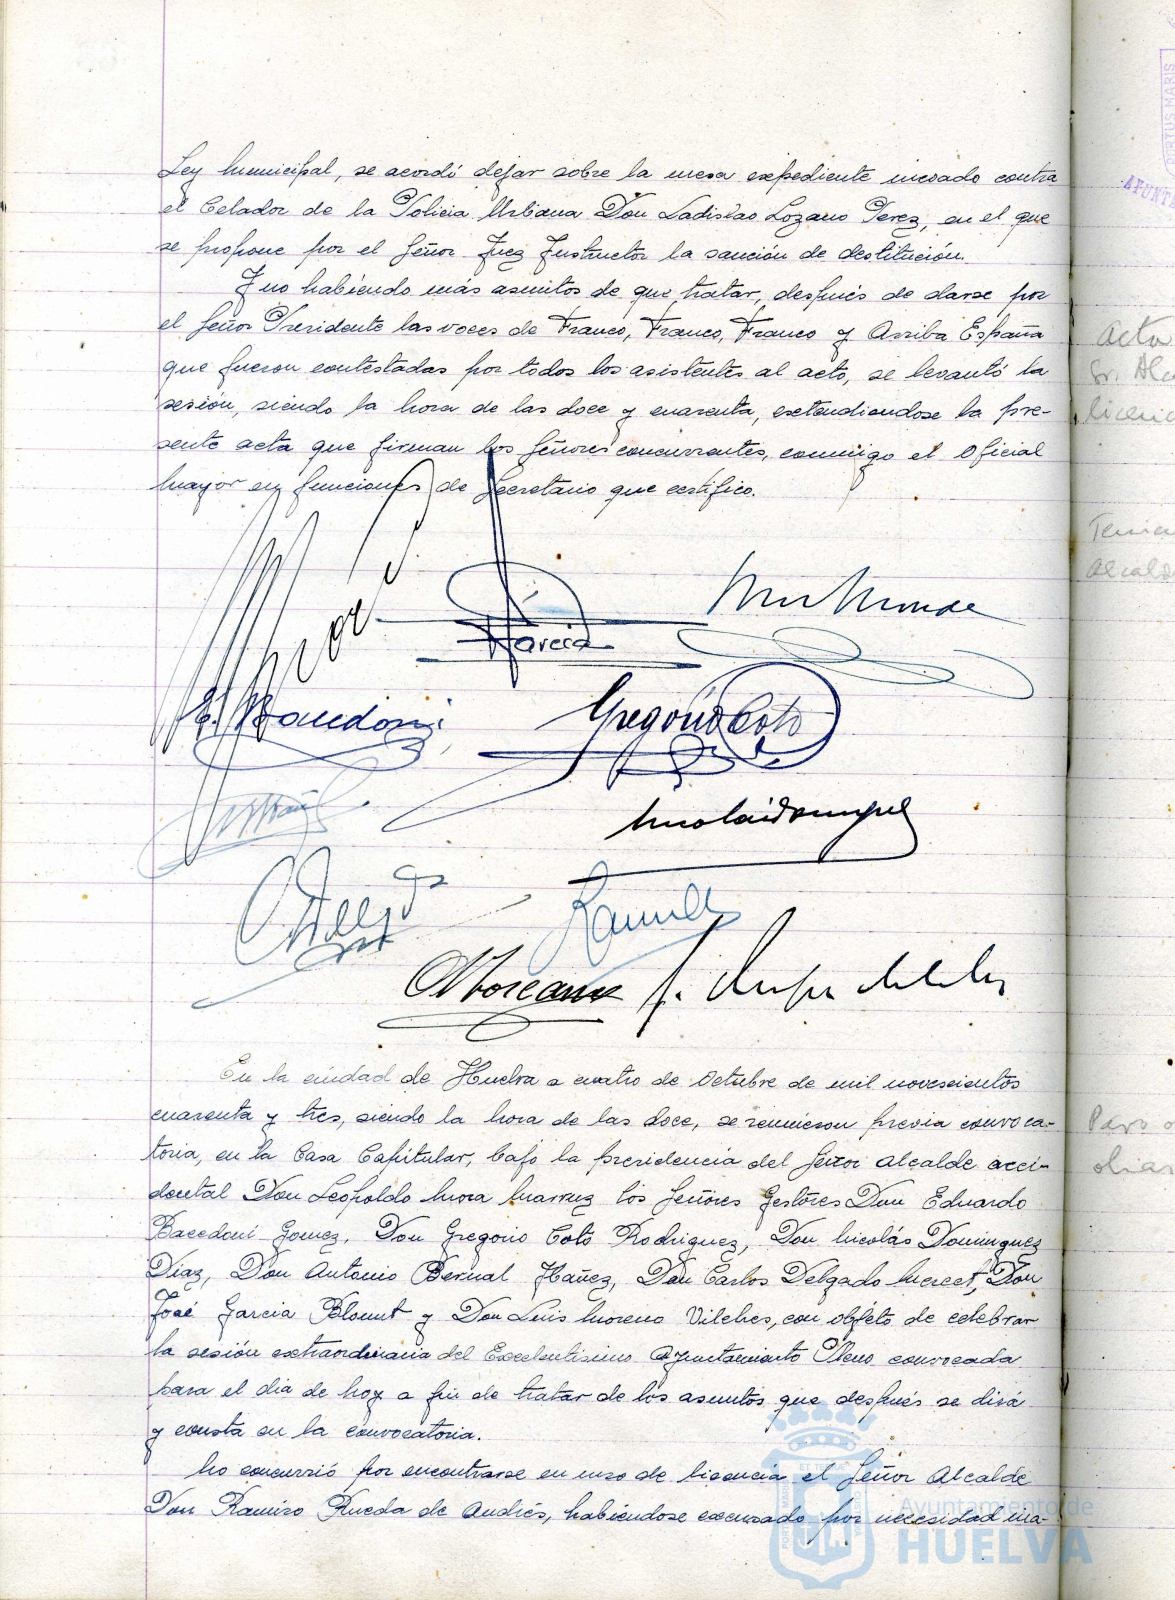 Ley Municipal, se acordó dejar sobre la mesa expediente incoado contra
el Celador de la Policia Urbana Don Ladislao Lozano Perez, en el que
se propone por el Señor Juez Instructor la sanción de destitución.
Y no habiendo más asuntos de que tratar, después de darse por
el Señor Presidente las voces de Franco, Franco, Franco y Arriba España
que fueron contestadas por todos los asistentes al acto, se levantó la
sesión, siendo la hora de las doce y cuarenta, extendiendose la pre-
sente acta que firman los Señores concurrentes, conmigo el Oficial
Mayor en funciones de Secretario que certifico.
Garcia
E. Bacedoni
Gregorio Coto
Nicolás Dominguez
En la ciudad de Huelva a cuatro de Octubre de mil novescientos
cuarenta y tres, siendo la hora de las doce, se reunieron previa convoca-
toria, en la Casa Capitular, bajo la presidencia del Señor Alcalde acci-
dental Don Leopoldo Mora los Señores Gestores Don Eduardo
Bacedoni Gomez, Don Gregorio Coto Rodriguez, Don Nicolás Dominguez
Diaz, Don Antonio Bernal Ibañez, Don Carlos Delgado Don
José Garcia Blount y Don Luis Moreno Vilches, con objeto de celebrar
la sesión extraordinaria del Excelentisimo Ayuntamiento Pleno convocada
para el dia de hoy a fin de tratar de los asuntos que después se dirá
y consta en la convocatoria.
No concurrió por encontrarse en uso de licencia el Señor Alcalde
Don Ramiro Rueda de Andrés, habiendose excusado por necesidad ina-
Acta
Ayuntamiento de
HUELVA